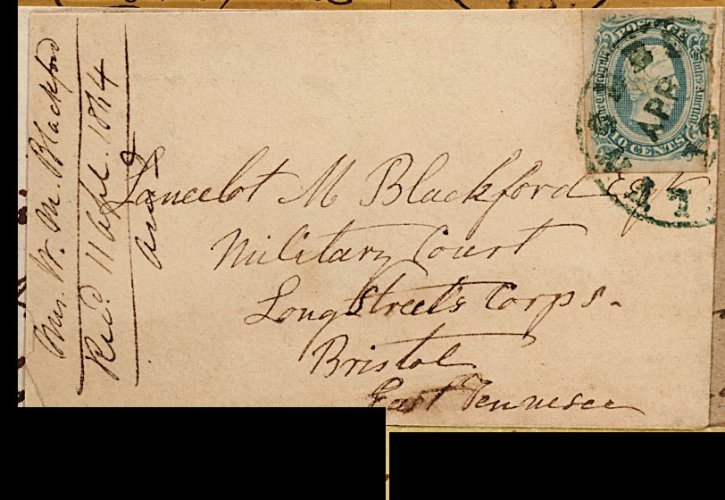 Lancelot M Blackford Esqr
Military Court
Longstreet's Corps.
Bristol
East Tennessee
Mrs. W. M. Blackford
Recd. 11 Apl. 1864
POSTAGE
10 CENTS
APR